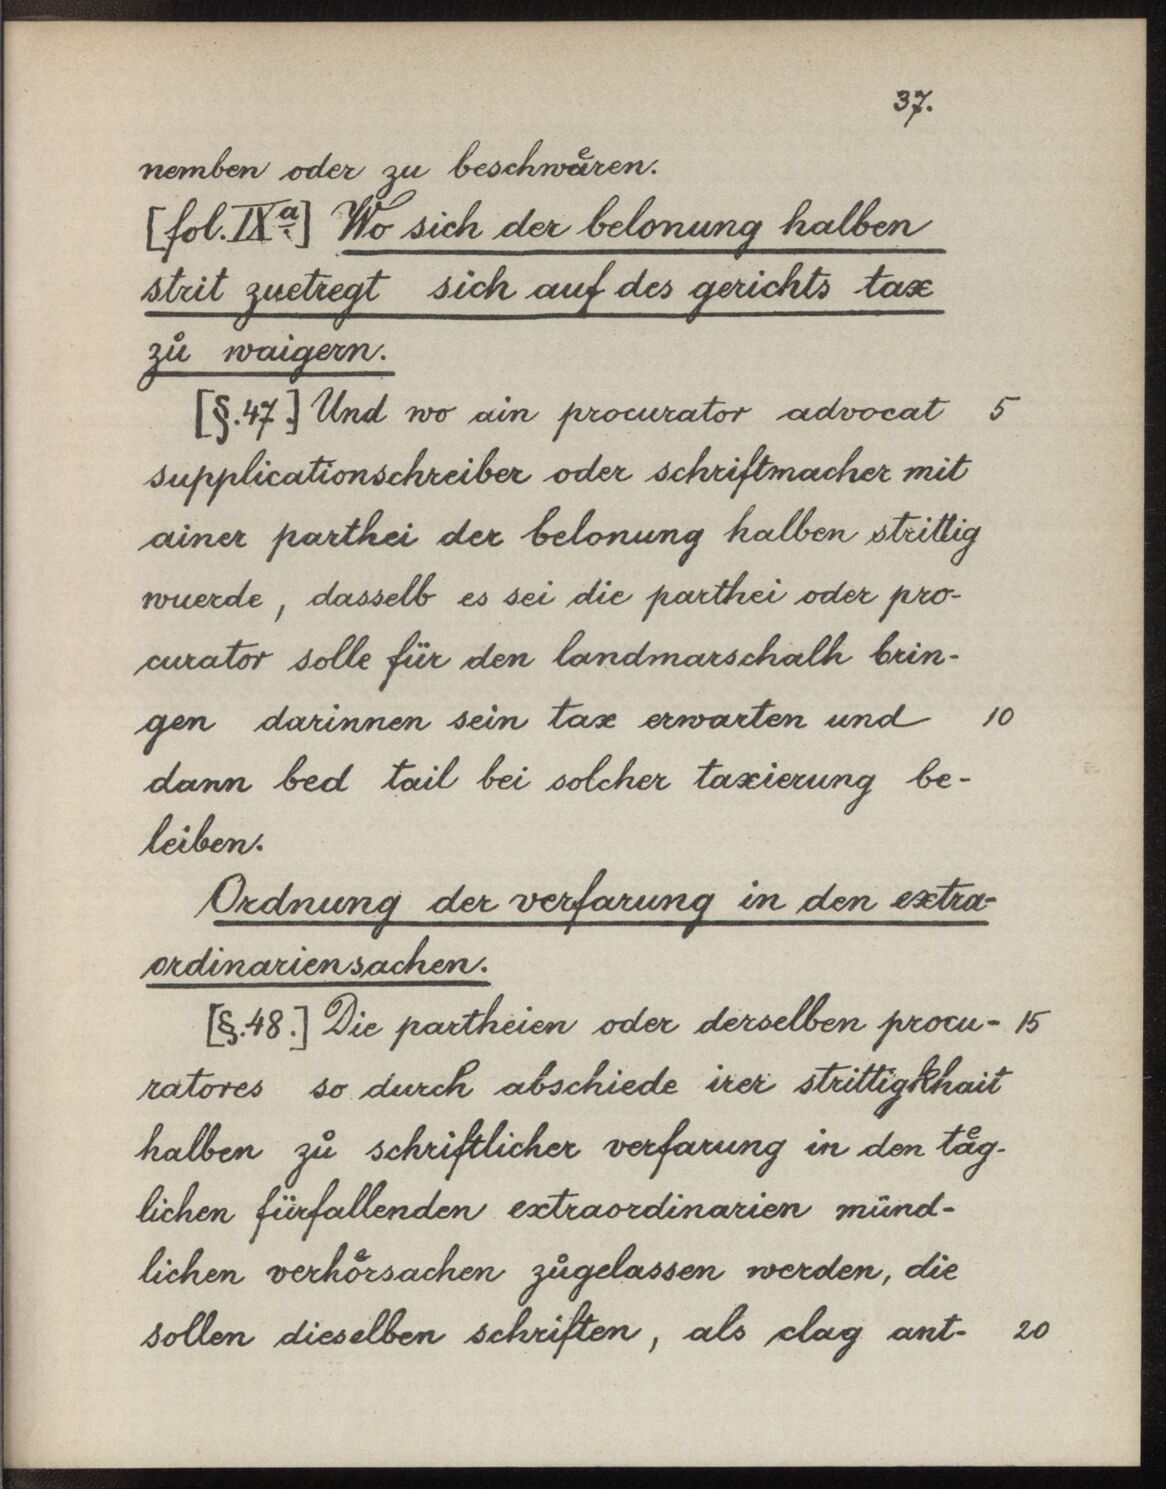 37.
nemben oder zu beschwåͤren.
[fol. IXª] Wo sich der belonung halben
strit zuetregt sich auf des gerichts tax
zů waigern.
[§. 47.] Und wo ain procurator advocat 5
supplicationschreiber oder schriftmacher mit
ainer parthei der belonung halben strittig
wuerde, dasselb es sei die parthei oder pro-
curator solle für den landmarschalh brin-
gen darinnen sein tax erwarten und 10
dann bed tail bei solcher taxierung be-
leiben.
Ordnung der verfarung in den extra-
ordinariensachen.
[§. 48.] Die partheien oder derselben procu- 15
ratores so durch abschiede irer strittigkhait
halben zů schriftlicher verfarung in den taͤg-
lichen fürfallenden extraordinarien münd-
lichen verhoͤrsachen zůgelassen werden, die
sollen dieselben schriften, als clag ant- 20